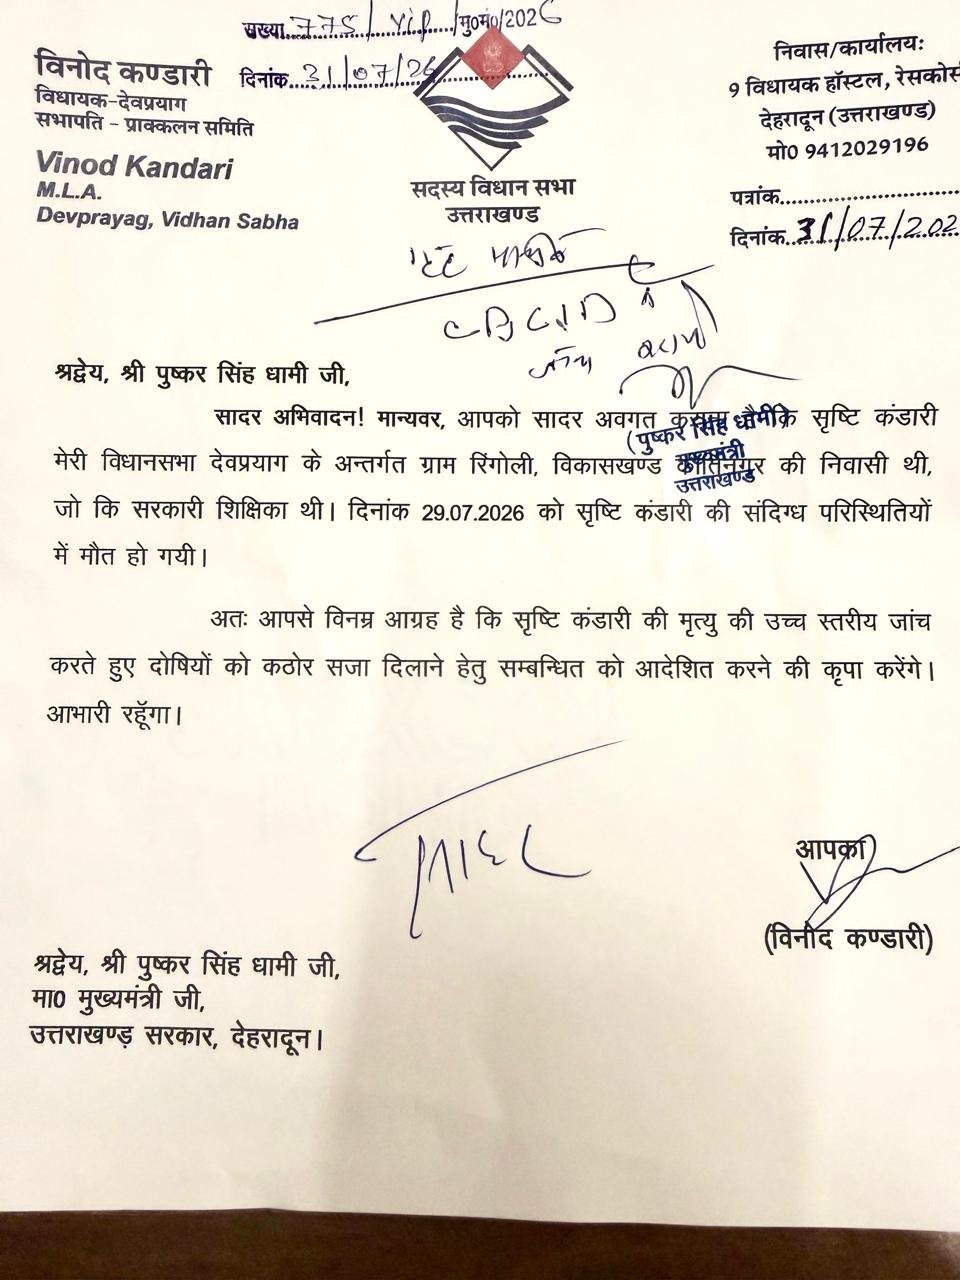 संख्या 775/VIP/मु0मं0/2026
दिनांक 31/07/26
विनोद कण्डारी
विधायक-देवप्रयाग
सभापति - प्राक्कलन समिति
Vinod Kandari
M.L.A.
Devprayag, Vidhan Sabha
सदस्य विधान सभा
उत्तराखण्ड
निवास/कार्यालयः
9 विधायक हॉस्टल, रेसकोर्स
देहरादून (उत्तराखण्ड)
मो0 9412029196
पत्रांक
दिनांक 31/07/202
CBCID
श्रद्वेय, श्री पुष्कर सिंह धामी जी,
सादर अभिवादन! मान्यवर, आपको सादर अवगत कि सृष्टि कंडारी
(पुष्कर सिंह धामी)
मुख्यमंत्री
उत्तराखण्ड
मेरी विधानसभा देवप्रयाग के अन्तर्गत ग्राम रिंगोली, विकासखण्ड कीर्तिनगर की निवासी थी,
जो कि सरकारी शिक्षिका थी। दिनांक 29.07.2026 को सृष्टि कंडारी की संदिग्ध परिस्थितियों
में मौत हो गयी।
अतः आपसे विनम्र आग्रह है कि सृष्टि कंडारी की मृत्यु की उच्च स्तरीय जांच
करते हुए दोषियों को कठोर सजा दिलाने हेतु सम्बन्धित को आदेशित करने की कृपा करेंगे।
आभारी रहूँगा।
आपका
(विनोद कण्डारी)
श्रद्वेय, श्री पुष्कर सिंह धामी जी,
मा0 मुख्यमंत्री जी,
उत्तराखण्ड़ सरकार, देहरादून।